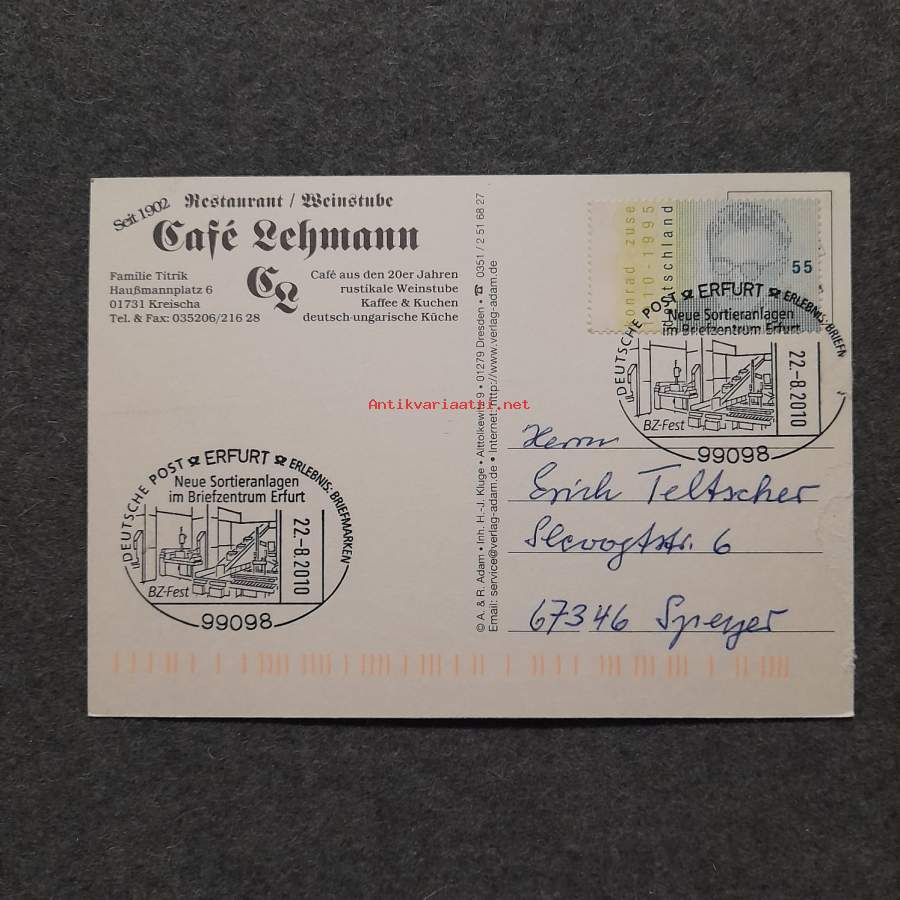 Seit 1902
Restaurant / Weinstube
Café Lehmann
CL
Familie Titrik
Haußmannplatz 6
01731 Kreischa
Tel. & Fax: 035206/216 28
Café aus den 20er Jahren
rustikale Weinstube
Kaffee & Kuchen
deutsch-ungarische Küche
DEUTSCHE POST ERFURT ERLEBNIS: BRIEFMARKEN
Neue Sortieranlagen
im Briefzentrum Erfurt
22.-8.2010
BZ-Fest
99098
© A. & R. Adam • Inh. H.-J. Kluge • Alttolkewitz 9 • 01279 Dresden • ☎ 0351 / 2 51 68 27
Email: service@verlag-adam.de • Internet: http://www.verlag-adam.de
konrad zuse
1910-1995
deutschland
55
DEUTSCHE POST ERFURT ERLEBNIS: BRIEFM
Neue Sortieranlagen
im Briefzentrum Erfurt
22.-8.2010
BZ-Fest
99098
Herrn
Erich Teltscher
Slevogtstr. 6
67346 Speyer
Antikvariaatti.net